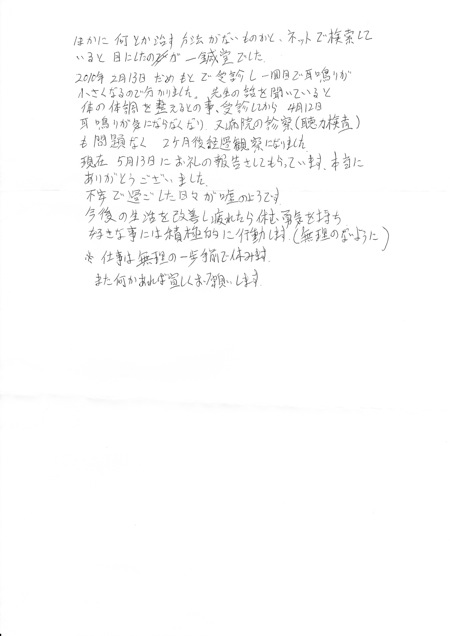 ほかに何とか治す方法がないものかと、ネットで検索して
いると目にしたのが一鍼堂でした。
2010年2月13日だめもとで受診し一回目で耳鳴りが
小さくなるので分かりました。先生の話を聞いていると
体の体調を整えるとの事、受診してから4月12日
耳鳴りが気にならなくなり、又病院の診察(聴力検査)
も問題なく2ケ月後経過観察になりました
現在5月13日にお礼の報告をしてもらっています。本当に
ありがとうございました。
不安で過ごした日々が嘘のようです
今後の生活を改善し疲れたら休む勇気を持ち
好きな事には積極的に行動します。(無理のないように)
※仕事は無理の一歩手前で休みます.
また何かあれば宜しくお願いします.